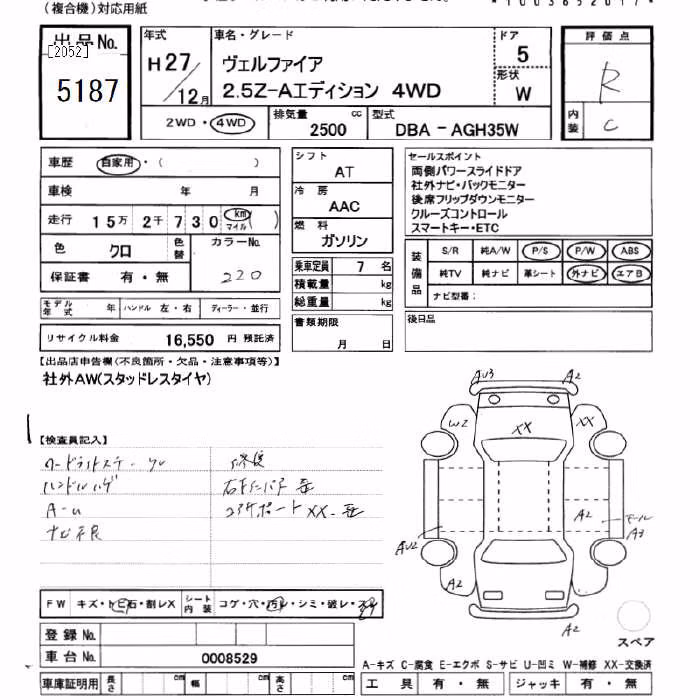 (複合機)対応用紙
出品No.
[2052]
5187
年式
H27/12月
車名・グレード
ヴェルファイア
2.5Z-Aエディション 4WD
ドア
5
形状
W
評価点
R
内装
C
2WD・4WD
排気量
2500 cc
型式
DBA - AGH35W
車歴 自家用・( )
車検 年 月
走行 15万 2千 730 km マイル ( )
色 クロ
色替
カラーNo.
220
保証書 有・無
シフト
AT
冷房
AAC
燃料
ガソリン
乗車定員 7 名
積載量 kg
総重量 kg
セールスポイント
両側パワースライドドア
社外ナビ・バックモニター
後席フリップダウンモニター
クルーズコントロール
スマートキー・ETC
装備品
S/R 純A/W P/S P/W ABS
純TV 純ナビ 革シート 外ナビ エアB
ナビ型番:
モデル年式 年
ハンドル 左・右
ディーラー・並行
リサイクル料金 16,550 円 預託済
書類期限
月 日
後日品
[出品店申告欄(不良箇所・欠品・注意事項等)]
社外AW(スタッドレスタイヤ)
【検査員記入】
修復
ハンドルハゲ
A-U
XX
AU3
A2
W2
XX
XX
A2
モール
A3
AU2
A2
A2
A2
FW キズ・トビ石・割レX
シート内装 コゲ・穴・汚レ・シミ・破レ・スレ
登録No.
車台No. 0008529
車庫証明用 長さ cm 幅 cm 高さ cm
スペア
A-キズ C-腐食 E-エクボ S-サビ U-凹ミ W-補修 XX-交換済
工具 有・無 ジャッキ 有・無